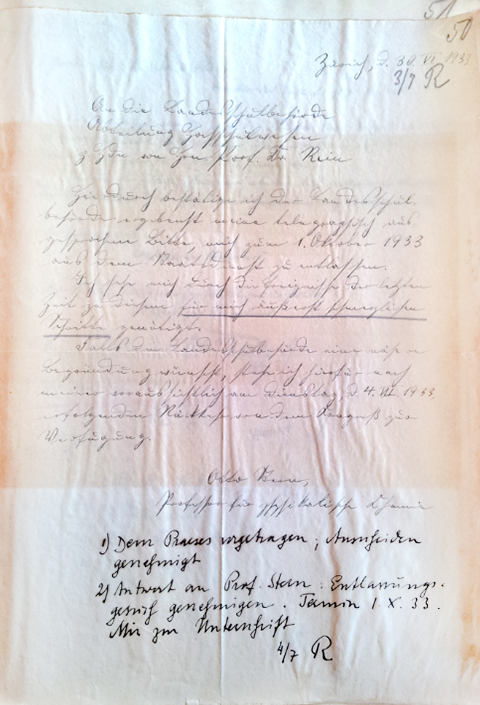 51
50
Zürich, d. 30. VI. 1933
3/7 R
An die Landesschulbehörde
Abteilung Hochschulwesen
z. Hdn von Hrn Prof. Dr. Rein
Hierdurch bestätige ich der Landesschul-
behörde ergebenst meine telegraphisch aus-
gesprochene Bitte, mich zum 1. Oktober 1933
aus dem Staatsdienst zu entlassen.
Ich sehe mich durch die Ereignisse der letzten
Zeit zu diesem für mich äußerst schmerzlichen
Schritte genötigt.
Falls die Landesschulbehörde eine nähere
Begründung wünscht, stehe ich hierfür nach
meiner voraussichtlich am Dienstag, d. 4. VII. 1933
erfolgenden Rückkehr von dem Kongreß zur
Verfügung.
Otto Stern,
Professor für physikalische Chemie
1) Dem Praeses vorgetragen; Ausscheiden
genehmigt
2) Antwort an Prof. Stern: Entlassungs-
gesuch genehmigen. Termin 1. X. 33.
Mir zur Unterschrift
4/7 R